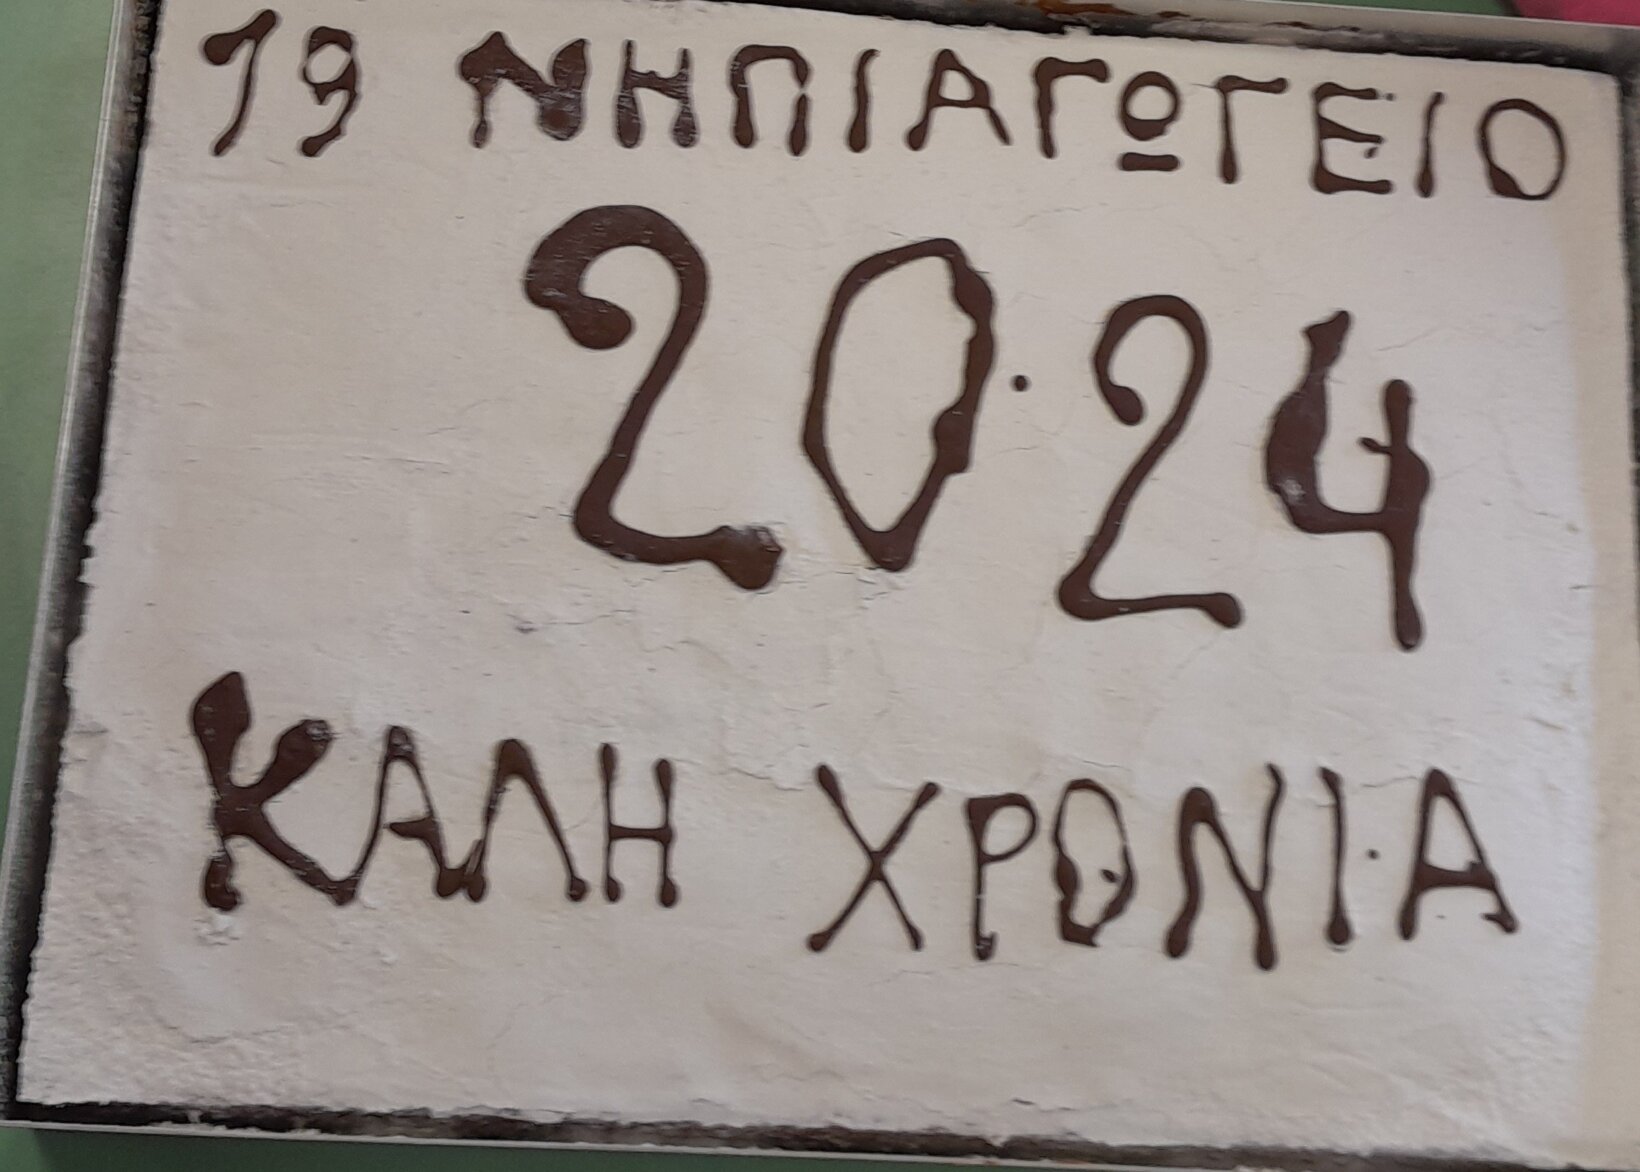 19 ΝΗΠΙΑΓΩΓΕΙΟ
2024
ΚΑΛΗ ΧΡΟΝΙΑ